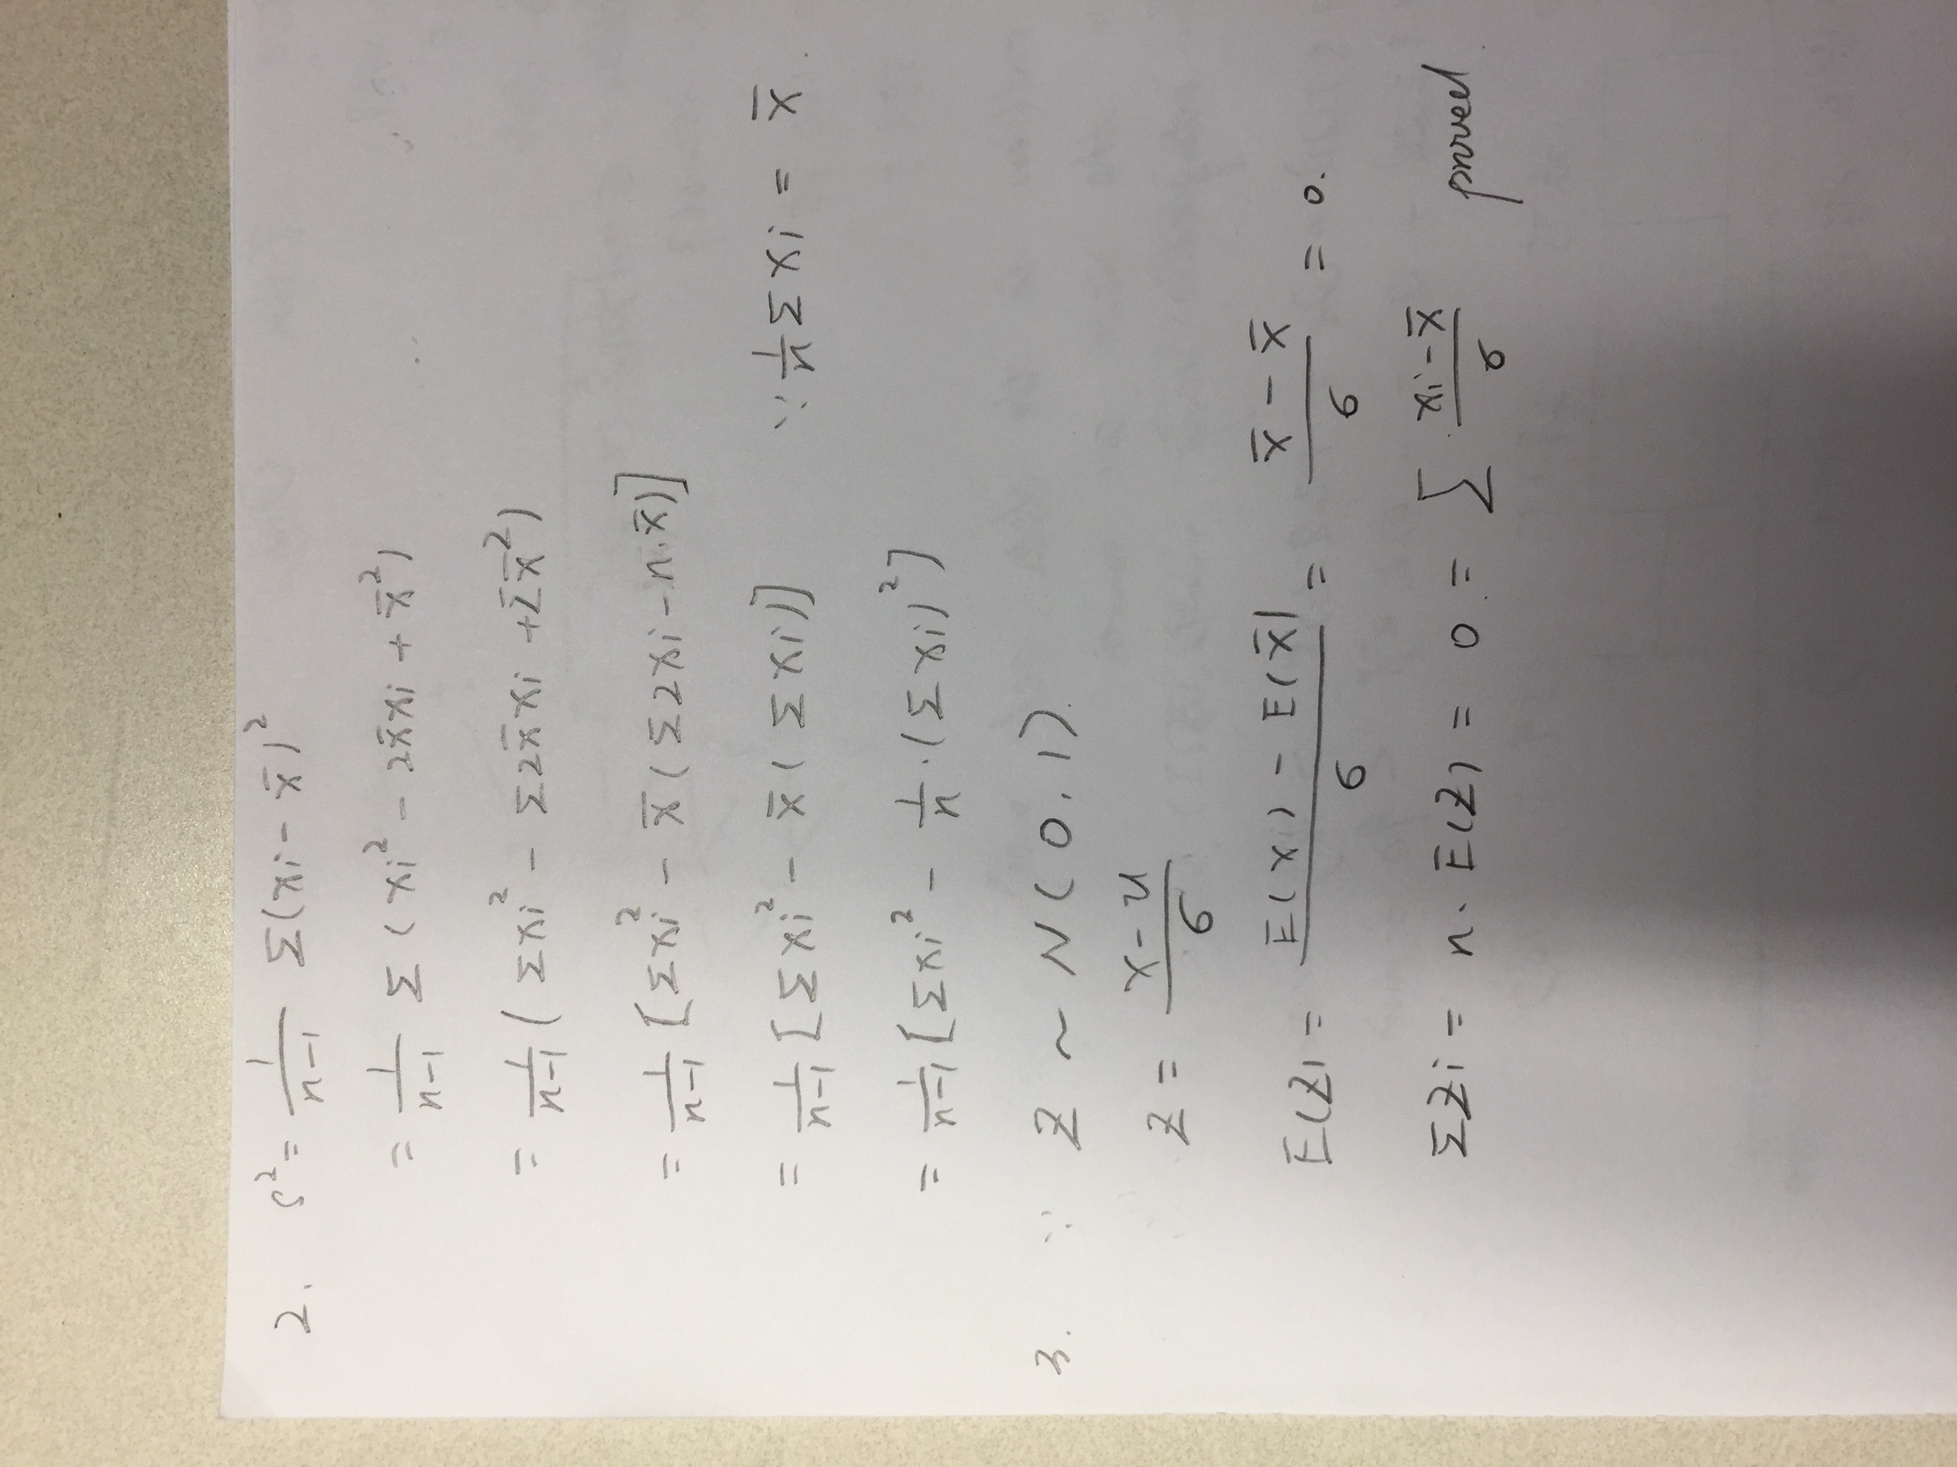 2. S² = 1/(n-1) Σ(xi - x̄)²
= 1/(n-1) Σ(xi² - 2x̄xi + x̄²)
= 1/(n-1) (Σxi² - Σ2x̄xi + Σx̄²)
= 1/(n-1) [Σxi² - x̄(Σ2xi - n·x̄)]
= 1/(n-1) [Σxi² - x̄(Σxi)] ∵ 1/n Σxi = x̄.
= 1/(n-1) [Σxi² - 1/n·(Σxi)²]
3. ∵ Z ~ N(0,1).
Z = (x-u)/6
E(Z) = (E(x) - E(x̄))/6 = (x̄ - x̄)/6 = 0.
ΣZi = n·E(Z) = 0. = Σ (xi - x̄)/σ proved.